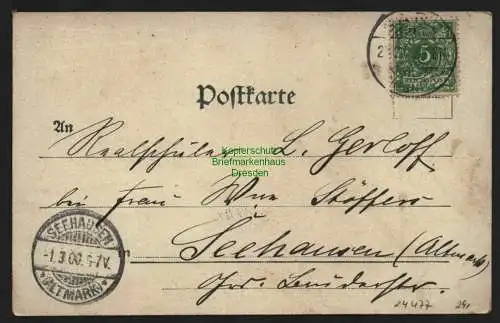 5
Postkarte
Kopierschutz
Briefmarkenhaus
Dresden
An Realschüler L. Gerloff
bei Frau Wwe Stöffers
SEEHAUSEN
-1.3.00.6-7V.
(ALTMARK)
in Seehausen (Altmark)
24477